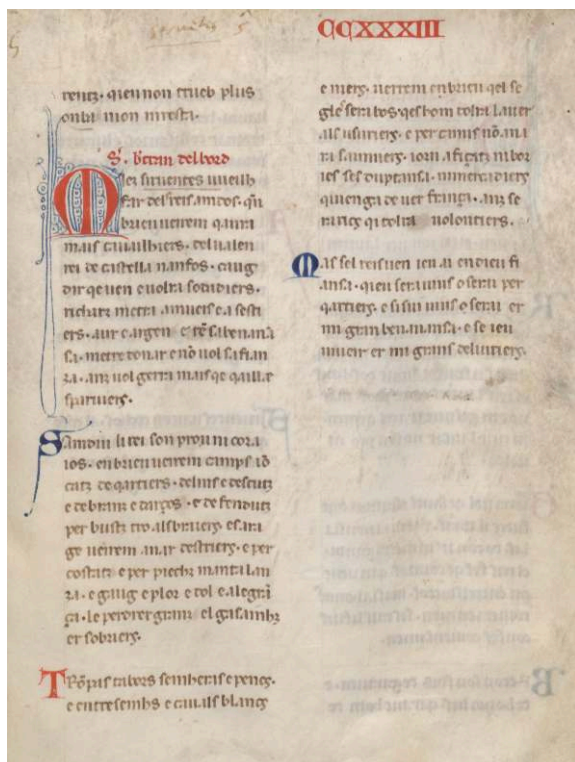 CCXXXIII
rentz. qieu non trueb plus
onbra mon iresta.
S. b̄tran delbord
Miei siruentes uueilh
far delsreis amdos. qen
brieu ueirem qaura
mais cauailhiers. del ualen
rei de castella nanfos. cauig
dir qe uen e uolra soudadiers.
richartz metra a mueis e a sesti
ers. aur e argen e tē sa benanā
sa. metre donar e nō uol sa fian
za. anz uol gerra mais qe qaillat
sparuiers.
Samdui li rei son prou ni cora
ios. en brieu ueirem camps iō
catz de qartiers. delms e descutz
e de branz e darços. e de fendutz
per bustz tro als braiers. es ara
ge ueirem anar destriers. e per
costatz e per piechz manta lan
za. e gaug e plor e dol e alegrā
ça. le perdrer granz el gasainhz
er sobriers.
Trōpas tabors seinheras e penos.
e entreseinhs e cauals blancs
e niers. ueirem en brieu qel se
gle sera bos. qes hom tolra lauer
als usuriers. e per camis nō ana
ra saumiers. iorn afizatz ni bor
ies ses duptansa. ni mercadiers
qi uenga de uer franza. anz se
ra rics qi tolra uolontiers.
Mas sel reis uen ieu ai en dieu fi
ansa. qieu serai uius o serai per
qartiers. e si sui uius o serai er
mi gran benanansa. e se ieu
mueir er mi grans deliuriers.